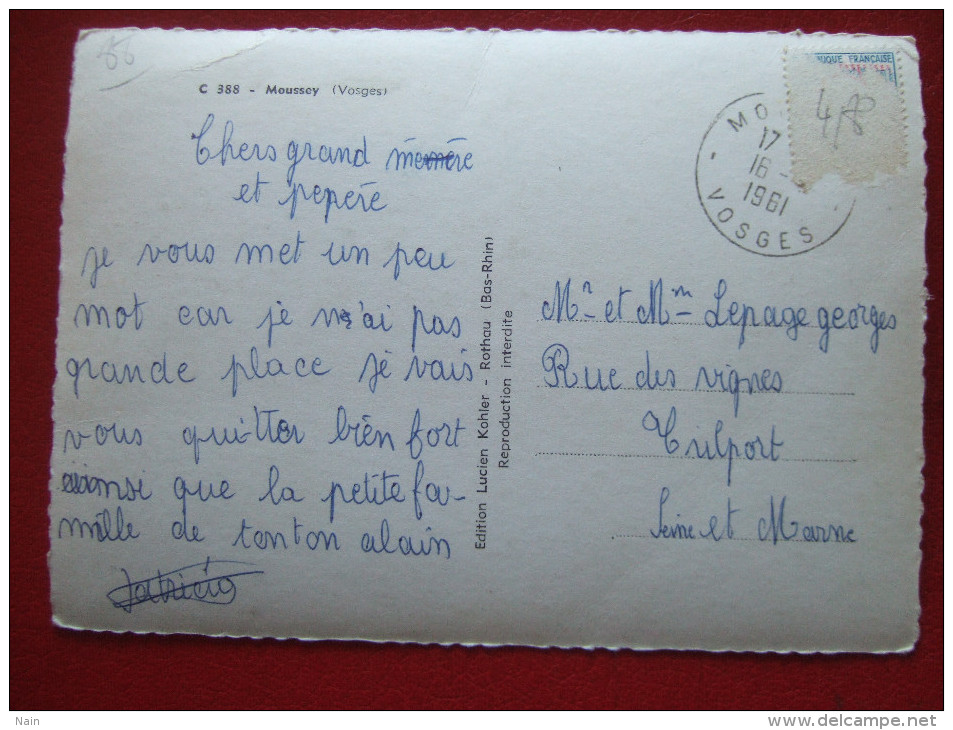 88
C 388 - Moussey (Vosges)
Chers grand mémère
et pepère
je vous met un peu
mot car je n'ai pas
grande place je vais
vous quitter bien fort
ainsi que la petite fa-
mille de tonton alain
Patricia
Edition Lucien Kohler - Rothau (Bas-Rhin)
Reproduction interdite
MO
17
16 -
1961
VOSGES
IQUE FRANÇAISE
Mr et Mm Lepage georges
Rue des vignes
Trilport
Seine et Marne
Nain
delcampe.net